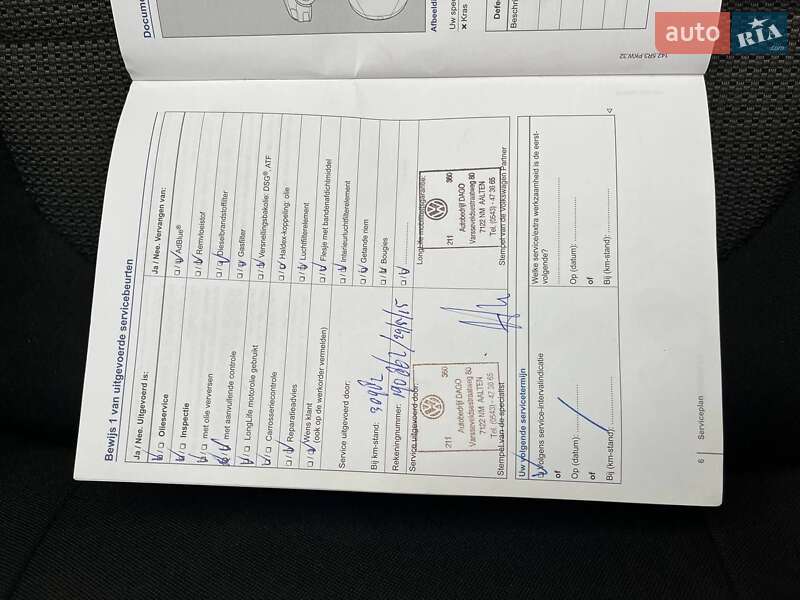 Docume
Afbeeldi
Uw spec
× Kras
Defe
Beschri
142.5R3.PKW.32
auto RIA
.com
Bewijs 1 van uitgevoerde servicebeurten
Ja / Nee. Uitgevoerd is:
Olieservice
Inspectie
met olie verversen
met aanvullende controle
LongLife motorolie gebruikt
Carrosseriecontrole
Reparatieadvies
Wens klant
(ook op de werkorder vermelden)
Service uitgevoerd door:
Bij km-stand: 30982
Rekeningnummer:
Service uitgevoerd door:
211 360
Autobedrijf DAGO
Varsseveldsestraatweg 80
7122 NM AALTEN
Tel. (0543) - 47 36 65
Stempel van de specialist
Ja / Nee. Vervangen van:
AdBlue®
Remvloeistof
Dieselbrandstoffilter
Gasfilter
Versnellingsbakolie: DSG®, ATF
Haldex-koppeling: olie
Luchtfilterelement
Flesje met bandenafdichtmiddel
Interieurluchtfilterelement
Getande riem
Bougies
LongLife mobiliteitsgarantie:
211 360
Autobedrijf DAGO
Varsseveldsestraatweg 80
7122 NM AALTEN
Tel. (0543) - 47 36 65
Stempel van de Volkswagen Partner
Uw volgende servicetermijn
volgens service-intervalindicatie
of
Op (datum):
of
Bij (km-stand):
Welke service/extra werkzaamheid is de eerst-
volgende?
Op (datum):
of
Bij (km-stand):
6 Serviceplan